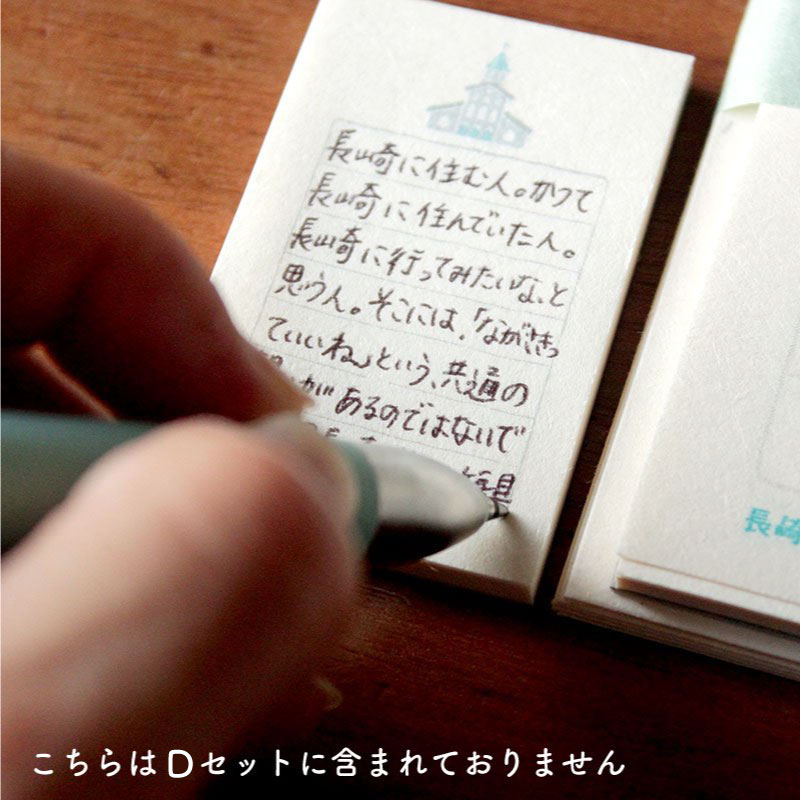 長崎に住む人。かつて
長崎に住んでいた人。
長崎に行ってみたいな、と
思う人。そこには、「ながさきっ
ていいね」という、共通の
があるのではないで
こちらはDセットに含まれておりません
長崎